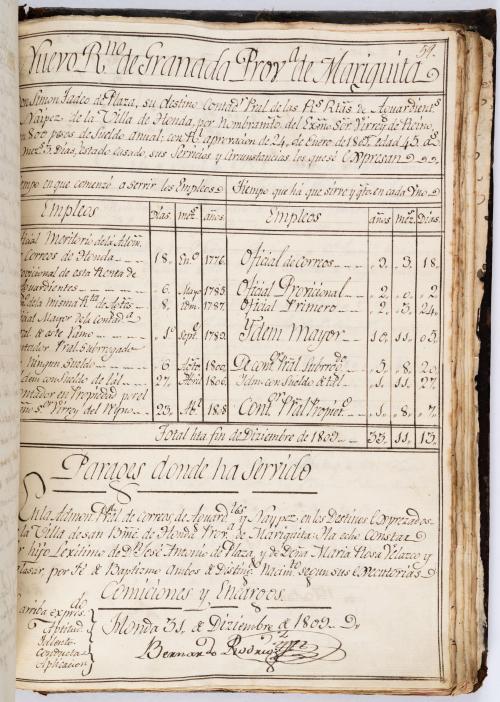 54.
Nuevo Rno. de Granada Prova. de Mariquita
on Simon Tadeo de Plaza, su destino Contador Pral. de las Rs. Rtas. de Aguardients
Naipes de la Villa de Honda, por Nombramto. del Exmo. Sor. Virrey de Reino,
on 800 pesos de Sueldo anual; con Rl. aprovacion de 24, de Enero de 180 edad 45 as.
mezs. 3 Dias, estado casado, sus Servicios y circunstancias los que se expresan
empo en que comenzó a servir los Empleos
Tiempo que há que sirve y qto. en cada Uno
Empleos Dias mezs. años. Empleos años mezs. Dias
ficial Meritorio de la Admn.
Correos de Honda 18. Eno. 1776. Oficial de correos 3. 3. 18.
ovicional de esta Renta de
guardientes 6. Mayo 1785. Oficial Provicional 2. 0. 2.
de la misma Rta. de Agtes. 8. 1787. Oficial Primero 2. 3. 24.
icial Mayor de la Contada.
ral. de este Ramo 1o. Septe. 1789. Idem Mayor 10. 11. 05.
ntador Pral. Subrogado
Ningun Sueldo 6. Agto. 1800. De contor. Pral. Subrogdo. 5. 8. 20.
dem con Sueldo de tal 27. Abril 1806. Idem con Sueldo de tal 1. 11. 27.
ontador en Propiedad por el
mo. Sor. Virrey del Reyno 23. Ml. 1808 Contor. Pral. Propieto. 1. 8. 7.
Total hta. fin de Diziembre de 1809 33. 11. 13.
Parages donde ha servido
En la Admon. Pral. de Correos, de Aguardtes. y Naypez, en los Destinos Exprezados
la Villa de san de Honda Prova. de Mariquita: Ha echo Constar
r hijo Lexitimo de Dn. José Antonio de Plaza, y de Doña Maria Rosa Velazco y
lasar, por Fé de Baptizmo Ambos de Distingdo. Nacimto. segun sus executorias
Comiciones y Encargos.
arriba de expres.
Aptitud
Talento
Conducta
Aplicacion
Honda 31, de Diziembre de 1809.
Bernardo Rodrigz.